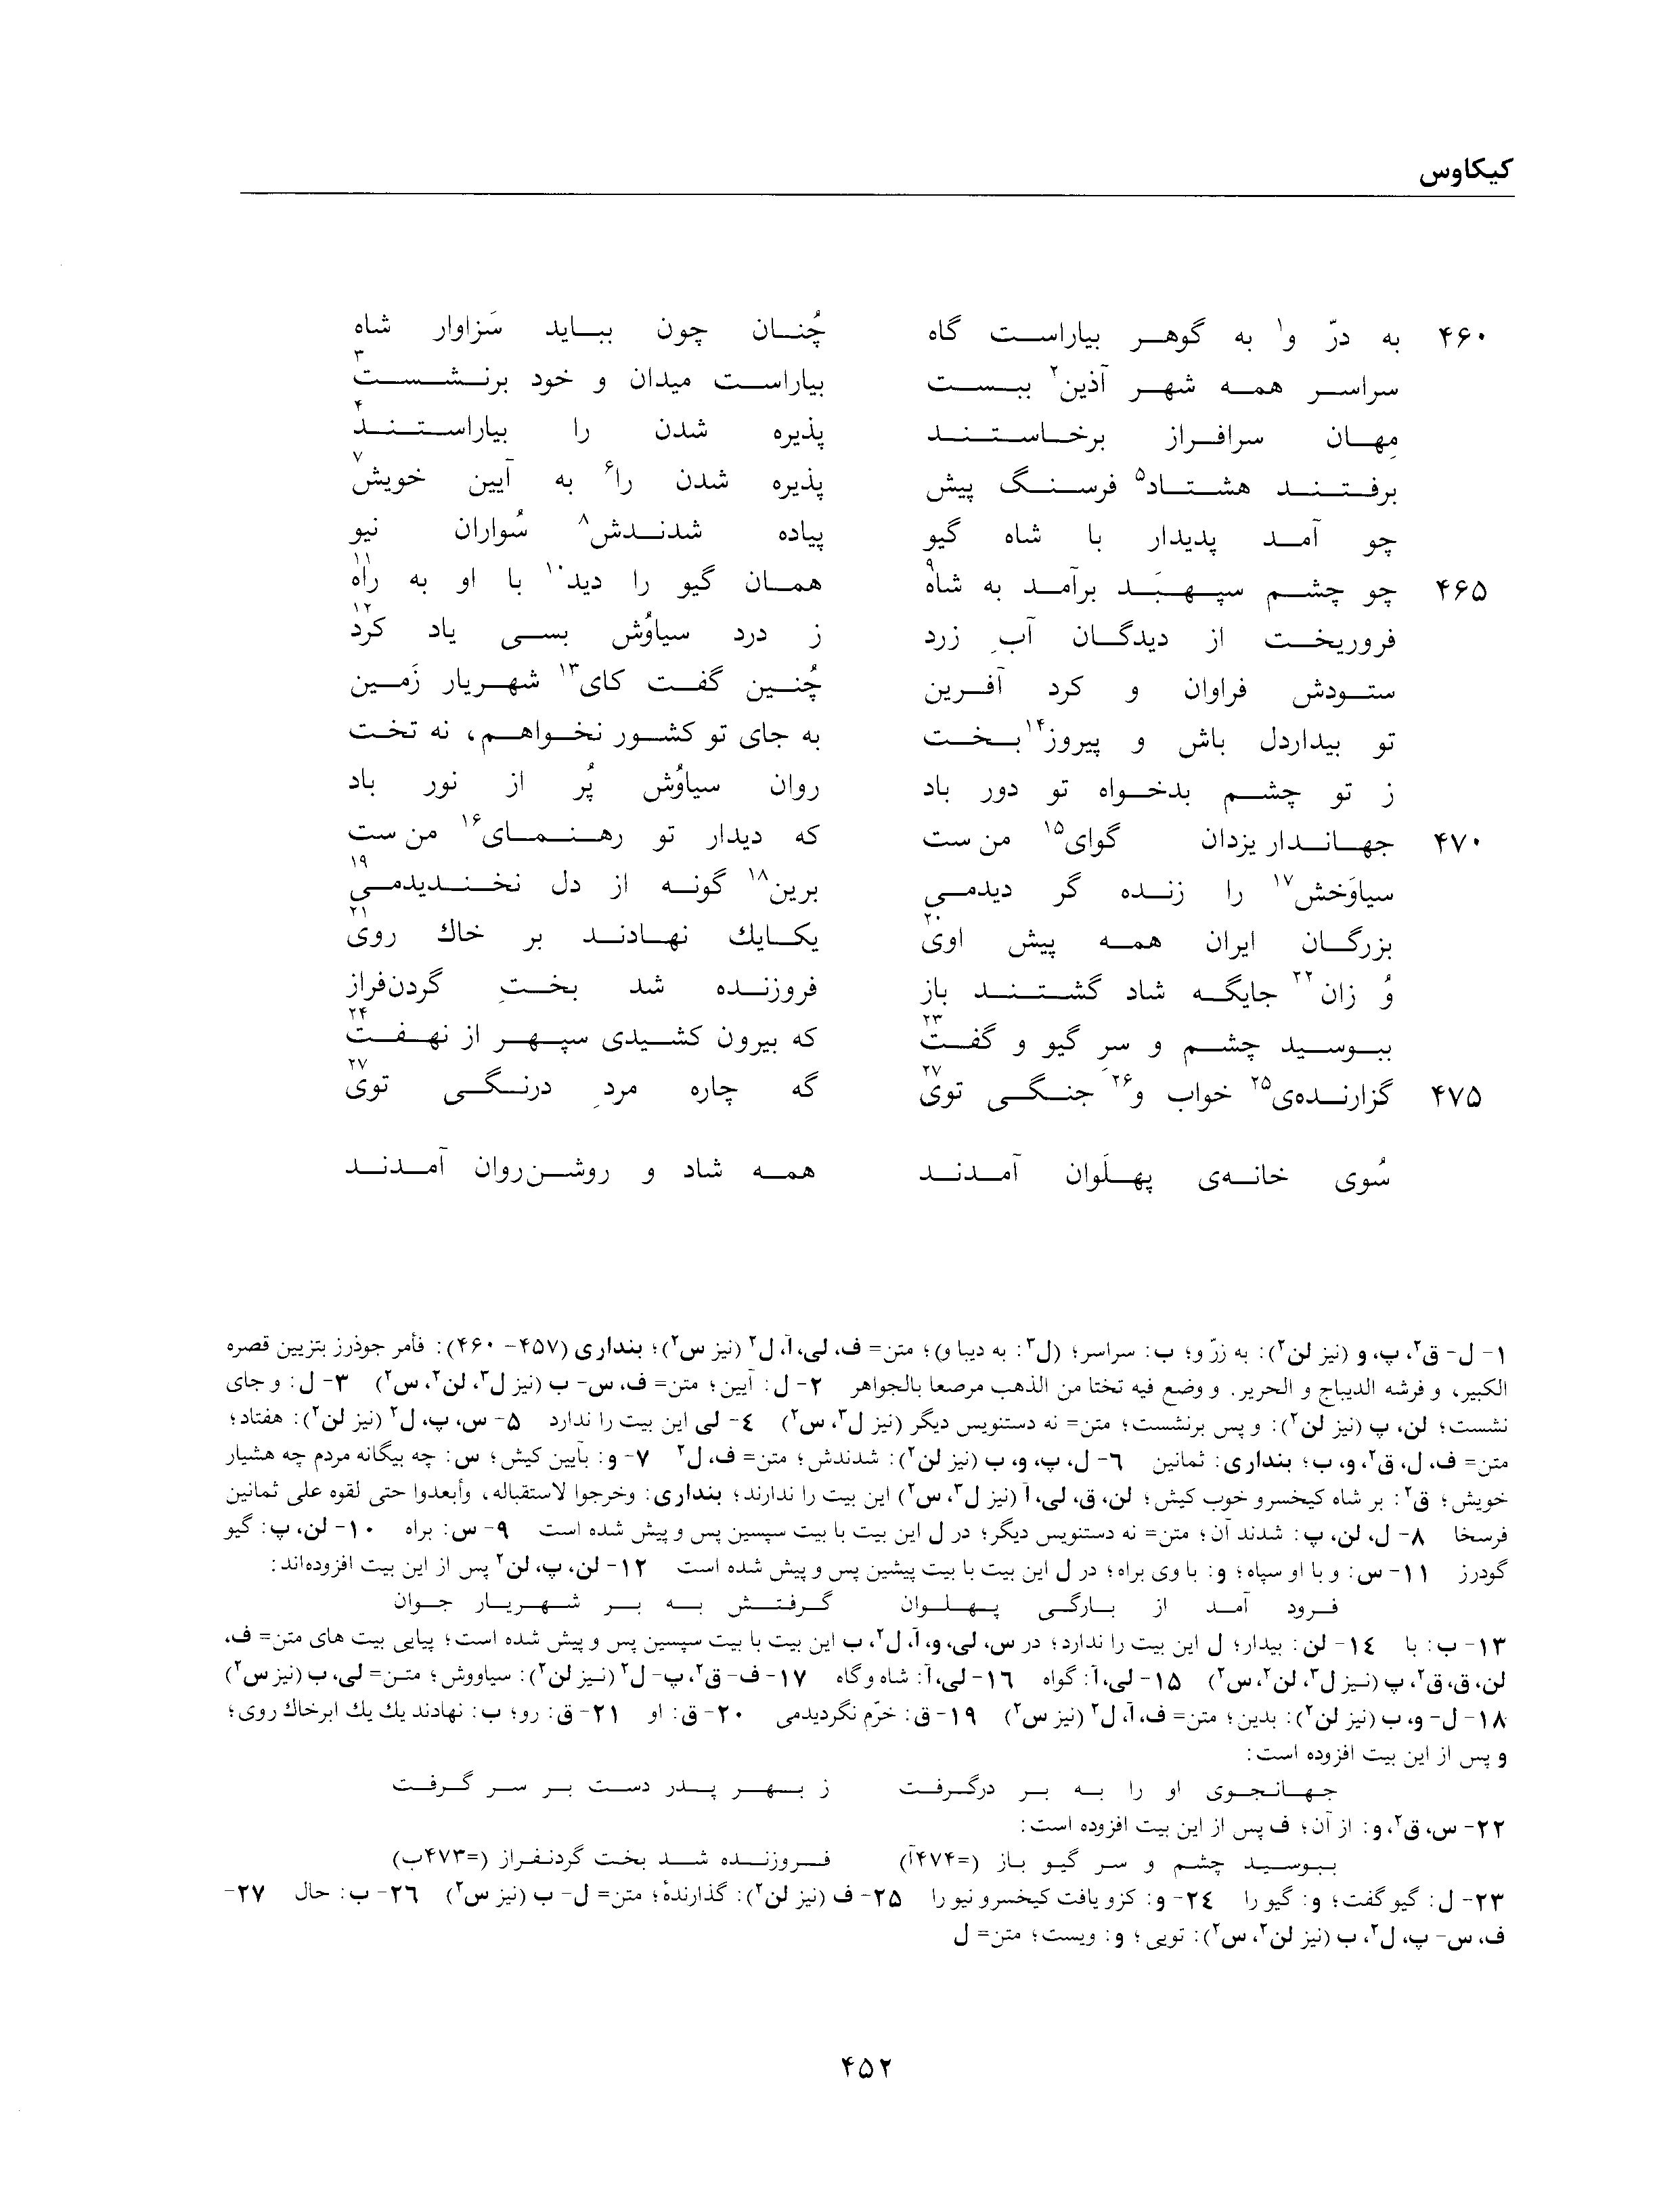 کیکاوس
۴۶۰ به درّ و۱ به گوهر بیاراست گاه چُنان چون بباید سَزاوار شاه
سراسر همه شهر آذین۲ ببست بیاراست میدان و خود برنشست۳
مِهان سرافراز برخاستند پذیره شدن را بیاراستند۴
برفتند هشتاد۵ فرسنگ پیش پذیره شدن را۶ به آیین خویش۷
چو آمد پدیدار با شاه گیو پیاده شدندش۸ سُواران نیو
۴۶۵ چو چشم سپهبَد برآمد به شاه۹ همان گیو را دید۱۰ با او به راه۱۱
فروریخت از دیدگان آبِ زرد ز درد سیاوُش بسی یاد کرد۱۲
ستودش فراوان و کرد آفرین چُنین گفت کای۱۳ شهریار زَمین
تو بیداردل باش و پیروز۱۴بخت به جای تو کشور نخواهم، نه تخت
ز تو چشم بدخواه تو دور باد روان سیاوُش پُر از نور باد
۴۷۰ جهاندار یزدان گوای۱۵ من ست که دیدار تو رهنمای۱۶ من ست
سیاوَخش۱۷ را زنده گر دیدمی برین۱۸ گونه از دل نخندیدمی۱۹
بزرگان ایران همه پیش اوی۲۰ یکایك نهادند بر خاك روی۲۱
وُ زان۲۲ جایگه شاد گشتند باز فروزنده شد بختِ گردن‌فراز
ببوسید چشم و سرِ گیو و گفت۲۳ که بیرون کشیدی سپهر از نهفت۲۴
۴۷۵ گزارنده‌ی۲۵ خواب و۲۶ جنگی توی۲۷ گه چاره مردِ درنگی توی۲۷
سُوی خانه‌ی پهلَوان آمدند همه شاد و روشن‌روان آمدند
۱- ل- ق۲، پ، و (نیز لن۲): به زرّ و؛ ب: سراسر؛ (ل۳: به دیبا و)؛ متن= ف، لی، آ، ل۲ (نیز س۲)؛ بنداری (۴۵۷- ۴۶۰): فأمر جوذرز بتزیین قصره
الکبیر، و فرشه الدیباج و الحریر. و وضع فیه تختا من الذهب مرصعا بالجواهر ۲- ل: آیین؛ متن= ف، س- ب (نیز ل۳، لن۲، س۲) ۳- ل: و جای
نشست؛ لن، پ (نیز لن۲): و پس برنشست؛ متن= نه دستنویس دیگر (نیز ل۳، س۲) ۴- لی این بیت را ندارد ۵- س، پ، ل۲ (نیز لن۲): هفتاد؛
متن= ف، ل، ق۲، و، ب؛ بنداری: ثمانین ۶- ل، پ، و، ب (نیز لن۲): شدندش؛ متن= ف، ل۲ ۷- و: بآیین کیش؛ س: چه بیگانه مردم چه هشیار
خویش؛ ق۲: بر شاه کیخسرو خوب کیش؛ لن، ق، لی، آ (نیز ل۳، س۲) این بیت را ندارند؛ بنداری: وخرجوا لاستقباله، وأبعدوا حتی لقوه علی ثمانین
فرسخا ۸- ل، لن، پ: شدند آن؛ متن= نه دستنویس دیگر؛ در ل این بیت با بیت سپسین پس و پیش شده است ۹- س: براه ۱۰- لن، پ: گیو
گودرز ۱۱- س: و با او سپاه؛ و: با وی براه؛ در ل این بیت با بیت پیشین پس و پیش شده است ۱۲- لن، پ، لن۲ پس از این بیت افزوده‌اند:
فرود آمد از بارگی پهلوان گرفتش به بر شهریار جوان
۱۳- ب: با ۱۴- لن: بیدار؛ ل این بیت را ندارد؛ در س، لی، و، آ، ل۲، ب این بیت با بیت سپسین پس و پیش شده است؛ پیاپی بیت های متن= ف،
لن، ق، ق۲، پ (نیز ل۳، لن۲، س۲) ۱۵- لی، آ: گواه ۱۶- لی، آ: شاه و گاه ۱۷- ف- ق۲، پ- ل۲ (نیز لن۲): سیاووش؛ متن= لی، ب (نیز س۲)
۱۸- ل- و، ب (نیز لن۲): بدین؛ متن= ف، آ، ل۲ (نیز س۲) ۱۹- ق: خرّم نگردیدمی ۲۰- ق: او ۲۱- ق: رو؛ ب: نهادند یك یك ابرخاك روی؛
و پس از این بیت افزوده است:
جهانجوی او را به بر درگرفت ز بهر پدر دست بر سر گرفت
۲۲- س، ق۲، و: از آن؛ ف پس از این بیت افزوده است:
ببوسید چشم و سر گیو باز (=۴۷۴آ) فروزنده شد بخت گردنفراز (=۴۷۳ب)
۲۳- ل: گیو گفت؛ و: گیو را ۲۴- و: کزو یافت کیخسرو نیو را ۲۵- ف (نیز لن۲): گذارندهٔ؛ متن= ل- ب (نیز س۲) ۲۶- ب: حال ۲۷-
ف، س- پ، ل۲، ب (نیز لن۲، س۲): تویی؛ و: ویست؛ متن= ل
۴۵۲